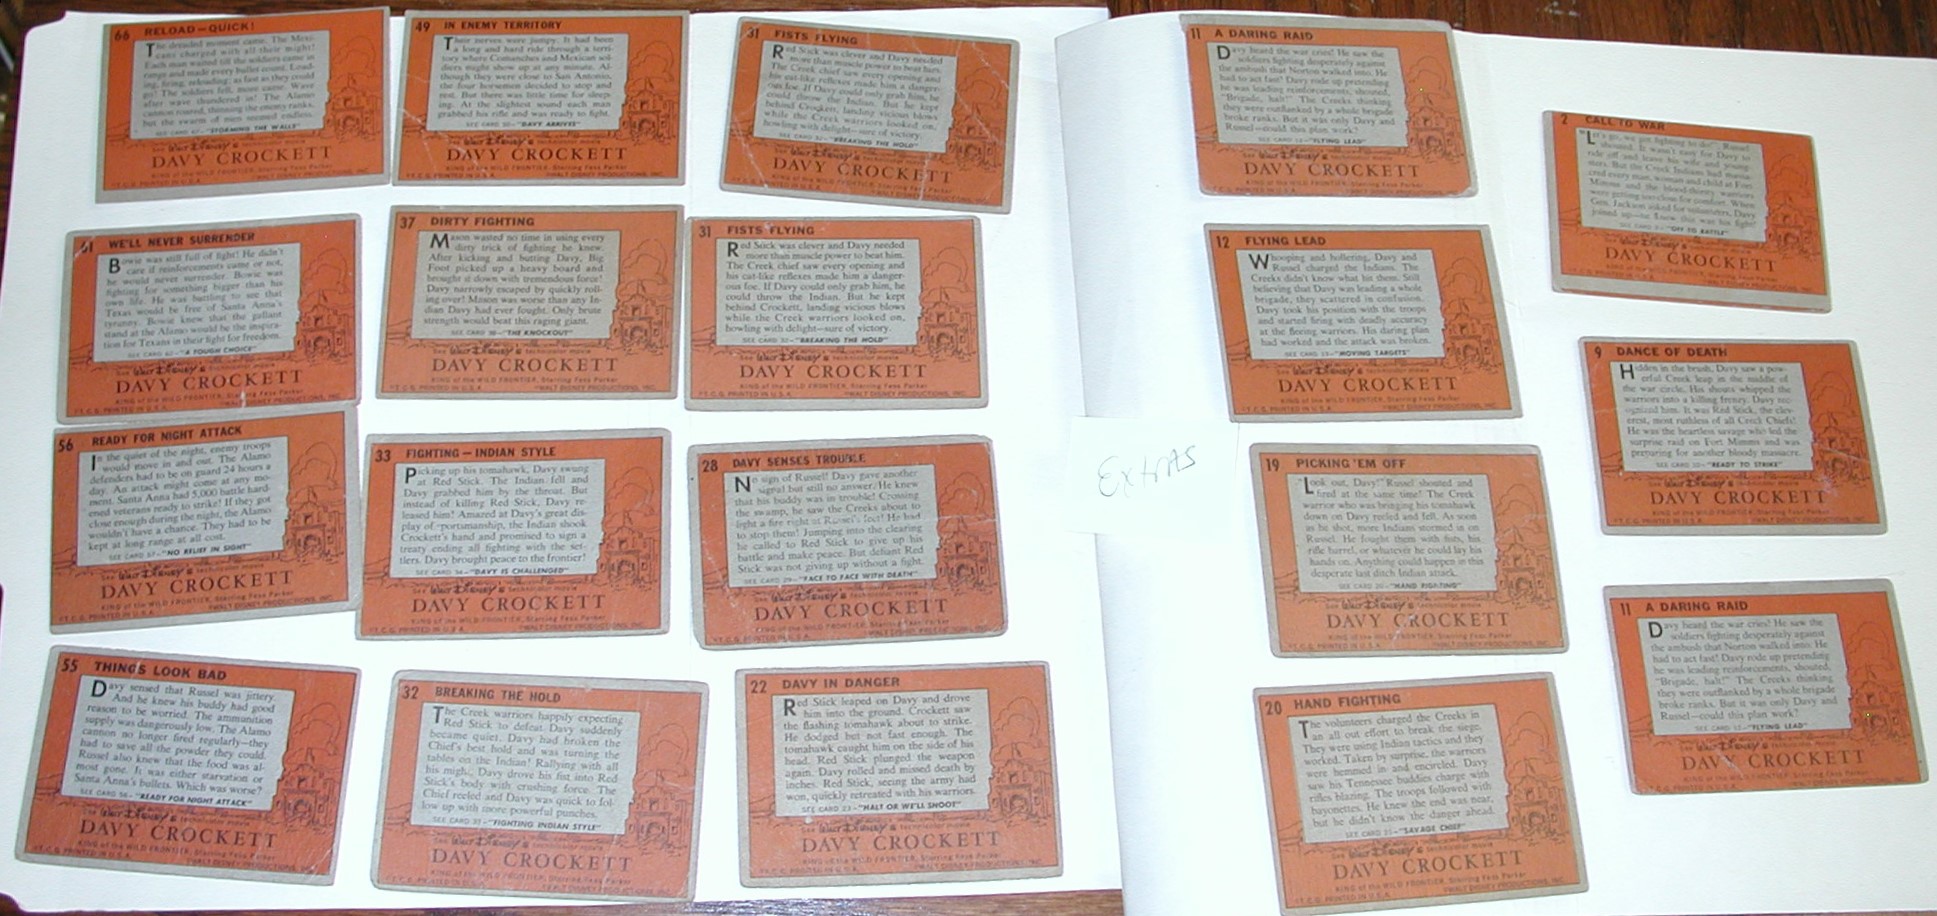 66 RELOAD—QUICK!
The dreaded moment came. The Mexi-
cans charged with all their might!
Each man waited till the soldiers came in
range and made every bullet count. Load-
ing, firing, reloading; as fast as they could
go! The soldiers fell, more came. Wave
after wave thundered in! The Alamo
cannon roared, thinning the enemy ranks,
but the swarm of men seemed endless.
SEE CARD 67—"STORMING THE WALLS"
See Walt Disney's technicolor movie
DAVY CROCKETT
KING of the WILD FRONTIER, Starring Fess Parker
T.C.G. PRINTED IN U.S.A. ©WALT DISNEY PRODUCTIONS, INC.
49 IN ENEMY TERRITORY
Their nerves were jumpy. It had been
a long and hard ride through a terri-
tory where Comanches and Mexican sol-
diers might show up at any minute. Al-
though they were close to San Antonio,
the four horsemen decided to stop and
rest. But there was little time for sleep-
ing. At the slightest sound each man
grabbed his rifle and was ready to fight.
SEE CARD 50—"DAVY ARRIVES"
See Walt Disney's technicolor movie
DAVY CROCKETT
KING of the WILD FRONTIER, Starring Fess Parker
T.C.G. PRINTED IN U.S.A. ©WALT DISNEY PRODUCTIONS, INC.
31 FISTS FLYING
Red Stick was clever and Davy needed
more than muscle power to beat him.
The Creek chief saw every opening and
his cat-like reflexes made him a danger-
ous foe. If Davy could only grab him, he
could throw the Indian. But he kept
behind Crockett, landing vicious blows
while the Creek warriors looked on,
howling with delight—sure of victory.
SEE CARD 32—"BREAKING THE HOLD"
See Walt Disney's technicolor movie
DAVY CROCKETT
KING of the WILD FRONTIER, Starring Fess Parker
T.C.G. PRINTED IN U.S.A. ©WALT DISNEY PRODUCTIONS, INC.
61 WE'LL NEVER SURRENDER
Bowie was still full of fight! He didn't
care if reinforcements came or not,
he would never surrender. Bowie was
fighting for something bigger than his
own life. He was battling to see that
Texas would be free of Santa Anna's
tyranny. Bowie knew that the gallant
stand at the Alamo would be the inspira-
tion for Texans in their fight for freedom.
SEE CARD 62—"A TOUGH CHOICE"
See Walt Disney's technicolor movie
DAVY CROCKETT
KING of the WILD FRONTIER, Starring Fess Parker
T.C.G. PRINTED IN U.S.A. ©WALT DISNEY PRODUCTIONS, INC.
37 DIRTY FIGHTING
Mason wasted no time in using every
dirty trick of fighting he knew.
After kicking and butting Davy, Big
Foot picked up a heavy board and
brought it down with tremendous force!
Davy narrowly escaped by quickly roll-
ing over! Mason was worse than any In-
dian Davy had ever fought. Only brute
strength would beat this raging giant.
SEE CARD 38—"THE KNOCKOUT"
See Walt Disney's technicolor movie
DAVY CROCKETT
KING of the WILD FRONTIER, Starring Fess Parker
T.C.G. PRINTED IN U.S.A. ©WALT DISNEY PRODUCTIONS, INC.
31 FISTS FLYING
Red Stick was clever and Davy needed
more than muscle power to beat him.
The Creek chief saw every opening and
his cat-like reflexes made him a danger-
ous foe. If Davy could only grab him, he
could throw the Indian. But he kept
behind Crockett, landing vicious blows
while the Creek warriors looked on,
howling with delight—sure of victory.
SEE CARD 32—"BREAKING THE HOLD"
See Walt Disney's technicolor movie
DAVY CROCKETT
KING of the WILD FRONTIER, Starring Fess Parker
T.C.G. PRINTED IN U.S.A. ©WALT DISNEY PRODUCTIONS, INC.
56 READY FOR NIGHT ATTACK
In the quiet of the night, enemy troops
would move in and out. The Alamo
defenders had to be on guard 24 hours a
day. An attack might come at any mo-
ment. Santa Anna had 5,000 battle hard-
ened veterans ready to strike! If they got
close enough during the night, the Alamo
wouldn't have a chance. They had to be
kept at long range at all cost.
SEE CARD 57—"NO RELIEF IN SIGHT"
See Walt Disney's technicolor movie
DAVY CROCKETT
KING of the WILD FRONTIER, Starring Fess Parker
T.C.G. PRINTED IN U.S.A. ©WALT DISNEY PRODUCTIONS, INC.
33 FIGHTING—INDIAN STYLE
Picking up his tomahawk, Davy swung
at Red Stick. The Indian fell and
Davy grabbed him by the throat. But
instead of killing Red Stick, Davy re-
leased him! Amazed at Davy's great dis-
play of sportsmanship, the Indian shook
Crockett's hand and promised to sign a
treaty ending all fighting with the set-
tlers. Davy brought peace to the frontier!
SEE CARD 34—"DAVY IS CHALLENGED"
See Walt Disney's technicolor movie
DAVY CROCKETT
KING of the WILD FRONTIER, Starring Fess Parker
T.C.G. PRINTED IN U.S.A. ©WALT DISNEY PRODUCTIONS, INC.
28 DAVY SENSES TROUBLE
No sign of Russel! Davy gave another
signal but still no answer. He knew
that his buddy was in trouble! Crossing
the swamp, he saw the Creeks about to
light a fire right at Russel's feet! He had
to stop them! Jumping into the clearing
he called to Red Stick to give up his
battle and make peace. But defiant Red
Stick was not giving up without a fight.
SEE CARD 29—"FACE TO FACE WITH DEATH"
See Walt Disney's technicolor movie
DAVY CROCKETT
KING of the WILD FRONTIER, Starring Fess Parker
T.C.G. PRINTED IN U.S.A. ©WALT DISNEY PRODUCTIONS, INC.
55 THINGS LOOK BAD
Davy sensed that Russel was jittery.
And he knew his buddy had good
reason to be worried. The ammunition
supply was dangerously low. The Alamo
cannon no longer fired regularly—they
had to save all the powder they could.
Russel also knew that the food was al-
most gone. It was either starvation or
Santa Anna's bullets. Which was worse?
SEE CARD 56—"READY FOR NIGHT ATTACK"
See Walt Disney's technicolor movie
DAVY CROCKETT
KING of the WILD FRONTIER, Starring Fess Parker
T.C.G. PRINTED IN U.S.A. ©WALT DISNEY PRODUCTIONS, INC.
32 BREAKING THE HOLD
The Creek warriors happily expecting
Red Stick to defeat Davy suddenly
became quiet. Davy had broken the
Chief's best hold and was turning the
tables on the Indian! Rallying with all
his might, Davy drove his fist into Red
Stick's body with crushing force. The
Chief reeled and Davy was quick to fol-
low up with more powerful punches.
SEE CARD 33—"FIGHTING INDIAN STYLE"
See Walt Disney's technicolor movie
DAVY CROCKETT
KING of the WILD FRONTIER, Starring Fess Parker
T.C.G. PRINTED IN U.S.A. ©WALT DISNEY PRODUCTIONS, INC.
22 DAVY IN DANGER
Red Stick leaped on Davy and drove
him into the ground. Crockett saw
the flashing tomahawk about to strike.
He dodged but not fast enough. The
tomahawk caught him on the side of his
head. Red Stick plunged the weapon
again. Davy rolled and missed death by
inches. Red Stick, seeing the army had
won, quickly retreated with his warriors.
SEE CARD 23—"HALT OR WE'LL SHOOT"
See Walt Disney's technicolor movie
DAVY CROCKETT
KING of the WILD FRONTIER, Starring Fess Parker
T.C.G. PRINTED IN U.S.A. ©WALT DISNEY PRODUCTIONS, INC.
Extras
11 A DARING RAID
Davy heard the war cries! He saw the
soldiers fighting desperately against
the ambush that Norton walked into. He
had to act fast! Davy rode up pretending
he was leading reinforcements, shouted,
"Brigade, halt!" The Creeks thinking
they were outflanked by a whole brigade
broke ranks. But it was only Davy and
Russel—could this plan work?
SEE CARD 12—"FLYING LEAD"
See Walt Disney's technicolor movie
DAVY CROCKETT
KING of the WILD FRONTIER, Starring Fess Parker
T.C.G. PRINTED IN U.S.A. ©WALT DISNEY PRODUCTIONS, INC.
2 CALL TO WAR
"Let's go, we got fighting to do!" Russel
shouted. It wasn't easy for Davy to
ride off and leave his wife and young-
sters. But the Creek Indians had massa-
cred every man, woman and child at Fort
Mimms and the blood-thirsty warriors
were getting too close for comfort. When
Gen. Jackson asked for volunteers, Davy
joined up—he knew this was his fight!
SEE CARD 3—"OFF TO BATTLE"
See Walt Disney's technicolor movie
DAVY CROCKETT
KING of the WILD FRONTIER, Starring Fess Parker
12 FLYING LEAD
Whooping and hollering, Davy and
Russel charged the Indians. The
Creeks didn't know what hit them. Still
believing that Davy was leading a whole
brigade, they scattered in confusion.
Davy took his position with the troops
and started firing with deadly accuracy
at the fleeing warriors. His daring plan
had worked and the attack was broken.
SEE CARD 13—"MOVING TARGETS"
See Walt Disney's technicolor movie
DAVY CROCKETT
KING of the WILD FRONTIER, Starring Fess Parker
T.C.G. PRINTED IN U.S.A. ©WALT DISNEY PRODUCTIONS, INC.
9 DANCE OF DEATH
Hidden in the brush, Davy saw a pow-
erful Creek leap in the middle of
the war circle. His shouts whipped the
warriors into a killing frenzy. Davy rec-
ognized him. It was Red Stick, the clev-
erest, most ruthless of all Creek Chiefs!
He was the heartless savage who led the
surprise raid on Fort Mimms and was
preparing for another bloody massacre.
SEE CARD 10—"READY TO STRIKE"
See Walt Disney's technicolor movie
DAVY CROCKETT
KING of the WILD FRONTIER, Starring Fess Parker
T.C.G. PRINTED IN U.S.A. ©WALT DISNEY PRODUCTIONS, INC.
19 PICKING 'EM OFF
"Look out, Davy!" Russel shouted and
fired at the same time! The Creek
warrior who was bringing his tomahawk
down on Davy reeled and fell. As soon
as he shot, more Indians stormed in on
Russel. He fought them with fists, his
rifle barrel, or whatever he could lay his
hands on. Anything could happen in this
desperate last ditch Indian attack.
SEE CARD 20—"HAND FIGHTING"
See Walt Disney's technicolor movie
DAVY CROCKETT
KING of the WILD FRONTIER, Starring Fess Parker
T.C.G. PRINTED IN U.S.A. ©WALT DISNEY PRODUCTIONS, INC.
11 A DARING RAID
Davy heard the war cries! He saw the
soldiers fighting desperately against
the ambush that Norton walked into. He
had to act fast! Davy rode up pretending
he was leading reinforcements, shouted,
"Brigade, halt!" The Creeks thinking
they were outflanked by a whole brigade
broke ranks. But it was only Davy and
Russel—could this plan work?
SEE CARD 12—"FLYING LEAD"
See Walt Disney's technicolor movie
DAVY CROCKETT
KING of the WILD FRONTIER, Starring Fess Parker
T.C.G. PRINTED IN U.S.A. ©WALT DISNEY PRODUCTIONS, INC.
20 HAND FIGHTING
The volunteers charged the Creeks in
an all out effort to break the siege.
They were using Indian tactics and they
worked. Taken by surprise, the warriors
were hemmed in and encircled. Davy
saw his Tennessee buddies charge with
rifles blazing. The troops followed with
bayonettes. He knew the end was near,
but he didn't know the danger ahead.
SEE CARD 21—"SAVAGE CHIEF"
See Walt Disney's technicolor movie
DAVY CROCKETT
KING of the WILD FRONTIER, Starring Fess Parker
T.C.G. PRINTED IN U.S.A. ©WALT DISNEY PRODUCTIONS, INC.